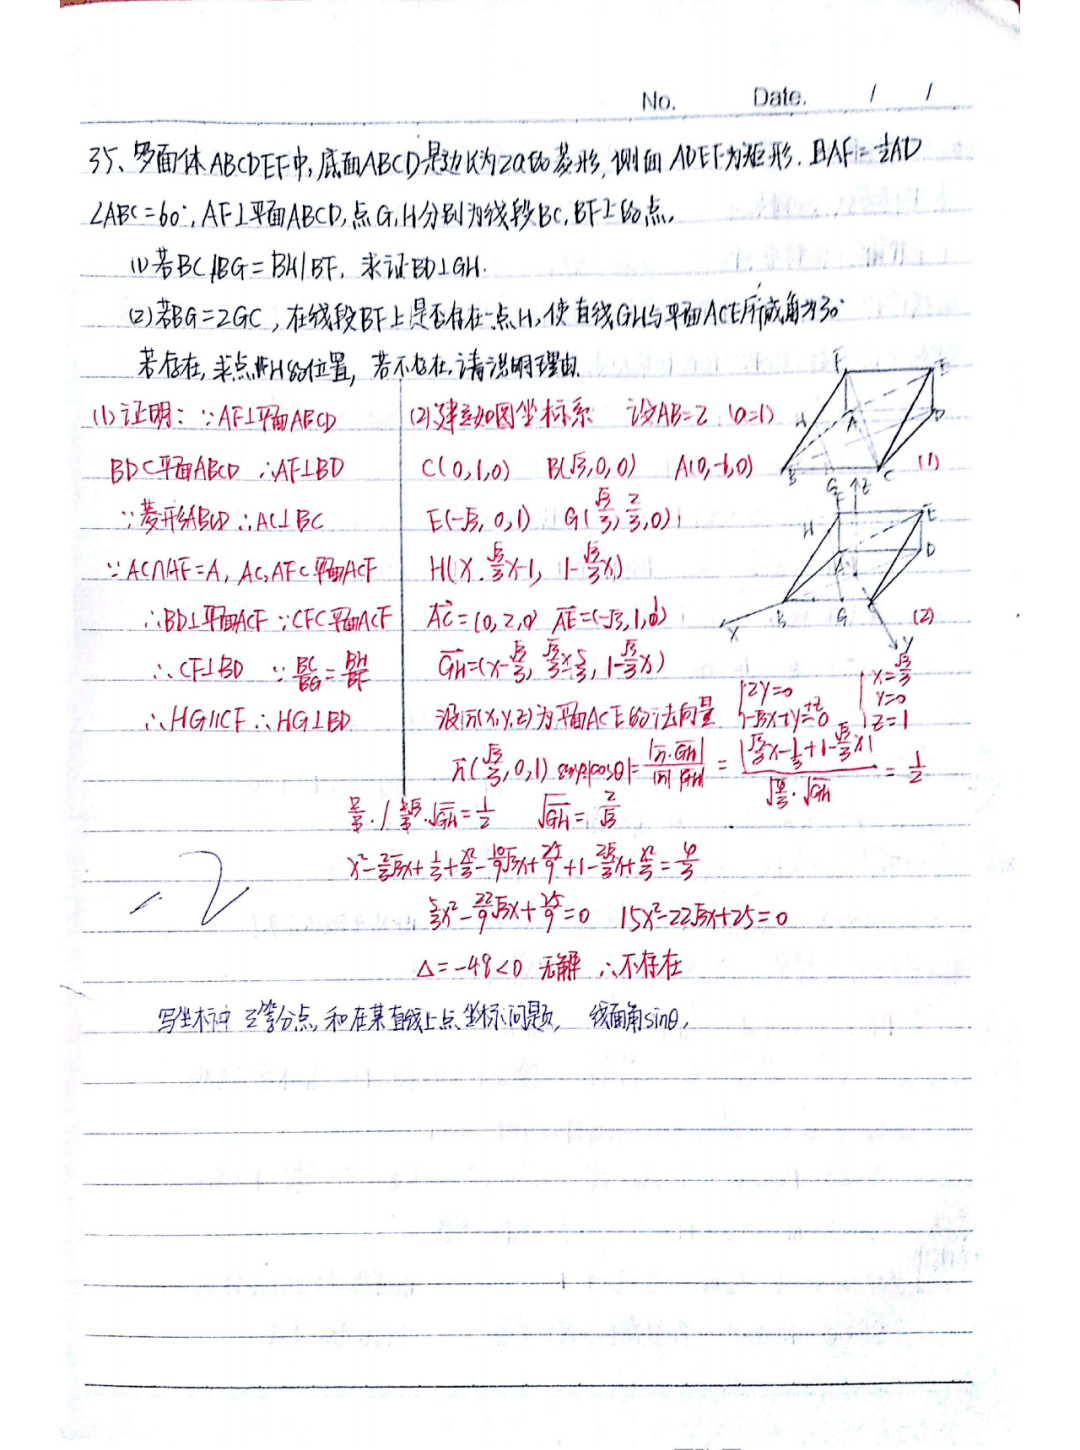 No. Date. / /
35、多面体ABCDEF中,底面ABCD是边长为2a的菱形,侧面ADEF为矩形.且AF=½AD
∠ABC=60°,AF⊥平面ABCD,点G,H分别为线段BC,BF上的点.
(1)若BC/BG=BH/BF,求证BD⊥GH.
(2)若BG=2GC,在线段BF上是否存在一点H,使直线GH与平面ACE所成角为30°
若存在,求点H的位置,若不存在,请说明理由.
(1)证明:∵AF⊥平面ABCD
BD⊂平面ABCD ∴AF⊥BD
∵菱形ABCD ∴AC⊥BC
∵AC∩AF=A, AC,AF⊂平面ACF
∴BD⊥平面ACF ∵CF⊂平面ACF
∴CF⊥BD ∵BC/BG=BH/BF
∴HG∥CF ∴HG⊥BD.
(2)建立如图坐标系 设AB=2 (a=1)
C(0,1,0) B(√3,0,0) A(0,-1,0)
E(-√3,0,1) G(√3/3,2/3,0),
H(x,√3/3x-1,1-√3/3x)
AC=(0,2,0) AE=(-√3,1,1)
GH=(x-√3/3,√3/3x-5/3,1-√3/3x)
设n(x,y,z)为平面ACE的法向量 {2y=0 -√3x+y+z=0 {x=√3/3 y=0 z=1
n(√3/3,0,1) |cosθ|=|n·GH|/|n||GH|=|√3/3x-1/3+1-√3/3x|/√4/3·√GH=1/2
√GH=2/√3
x²-2/3√3x+1/3+x²/3-10/9√3x+25/9+1-2√3/3x+x²/3=4/3
5/3x²-22/9√3x+25/9=0 15x²-22√3x+25=0
Δ=-48<0 无解 ∴不存在
写坐标中 三等分点,和在某直线上点坐标问题, 线面角sinθ.
F E H A D B G C (1)
Z F E H D A B G C X Y (2)